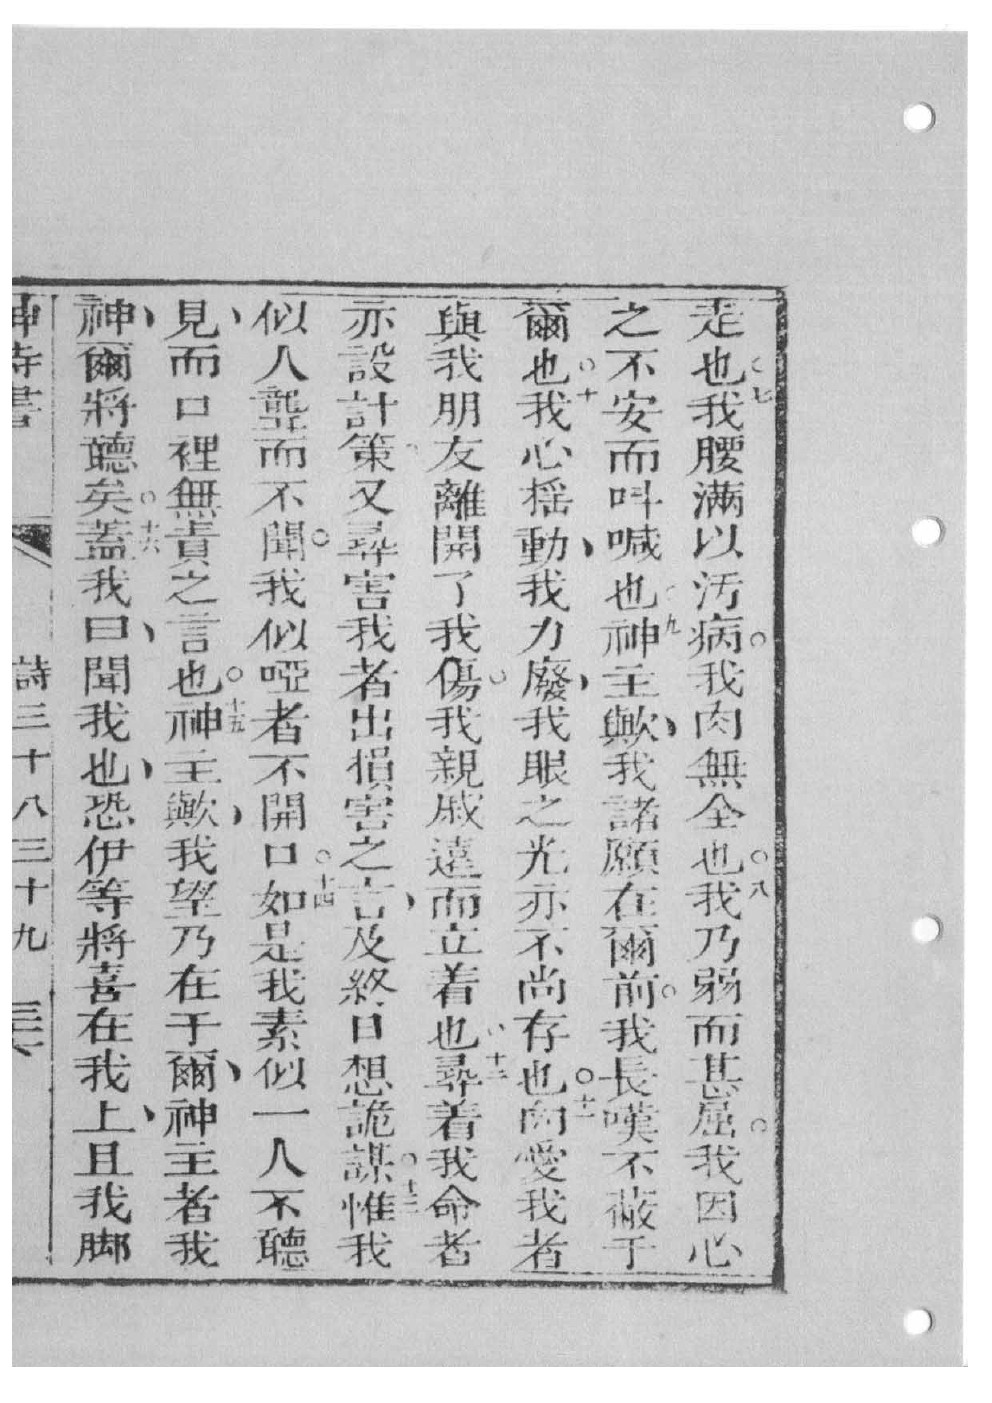 走也七我腰滿以汚病我肉無全也八我乃弱而甚屈我因心
之不安而呌喊也九神主歟我諸願在爾前我長嘆不蔽于
爾也十我心揺動我力廢我眼之光亦不尚存也十一向愛我者
與我朋友離開了我傷我親戚遠而立着也十二尋着我命者
亦設計策又尋害我者出損害之言及終日想詭謀十三惟我
似人聾而不聞我似啞者不開口十四如是我素似一人不聽
見而口裡無責之言也十五神主歟我望乃在于爾神主者我
神爾將聽矣十六蓋我曰聞我也恐伊等將喜在我上且我脚
神詩書 詩三十八三十九